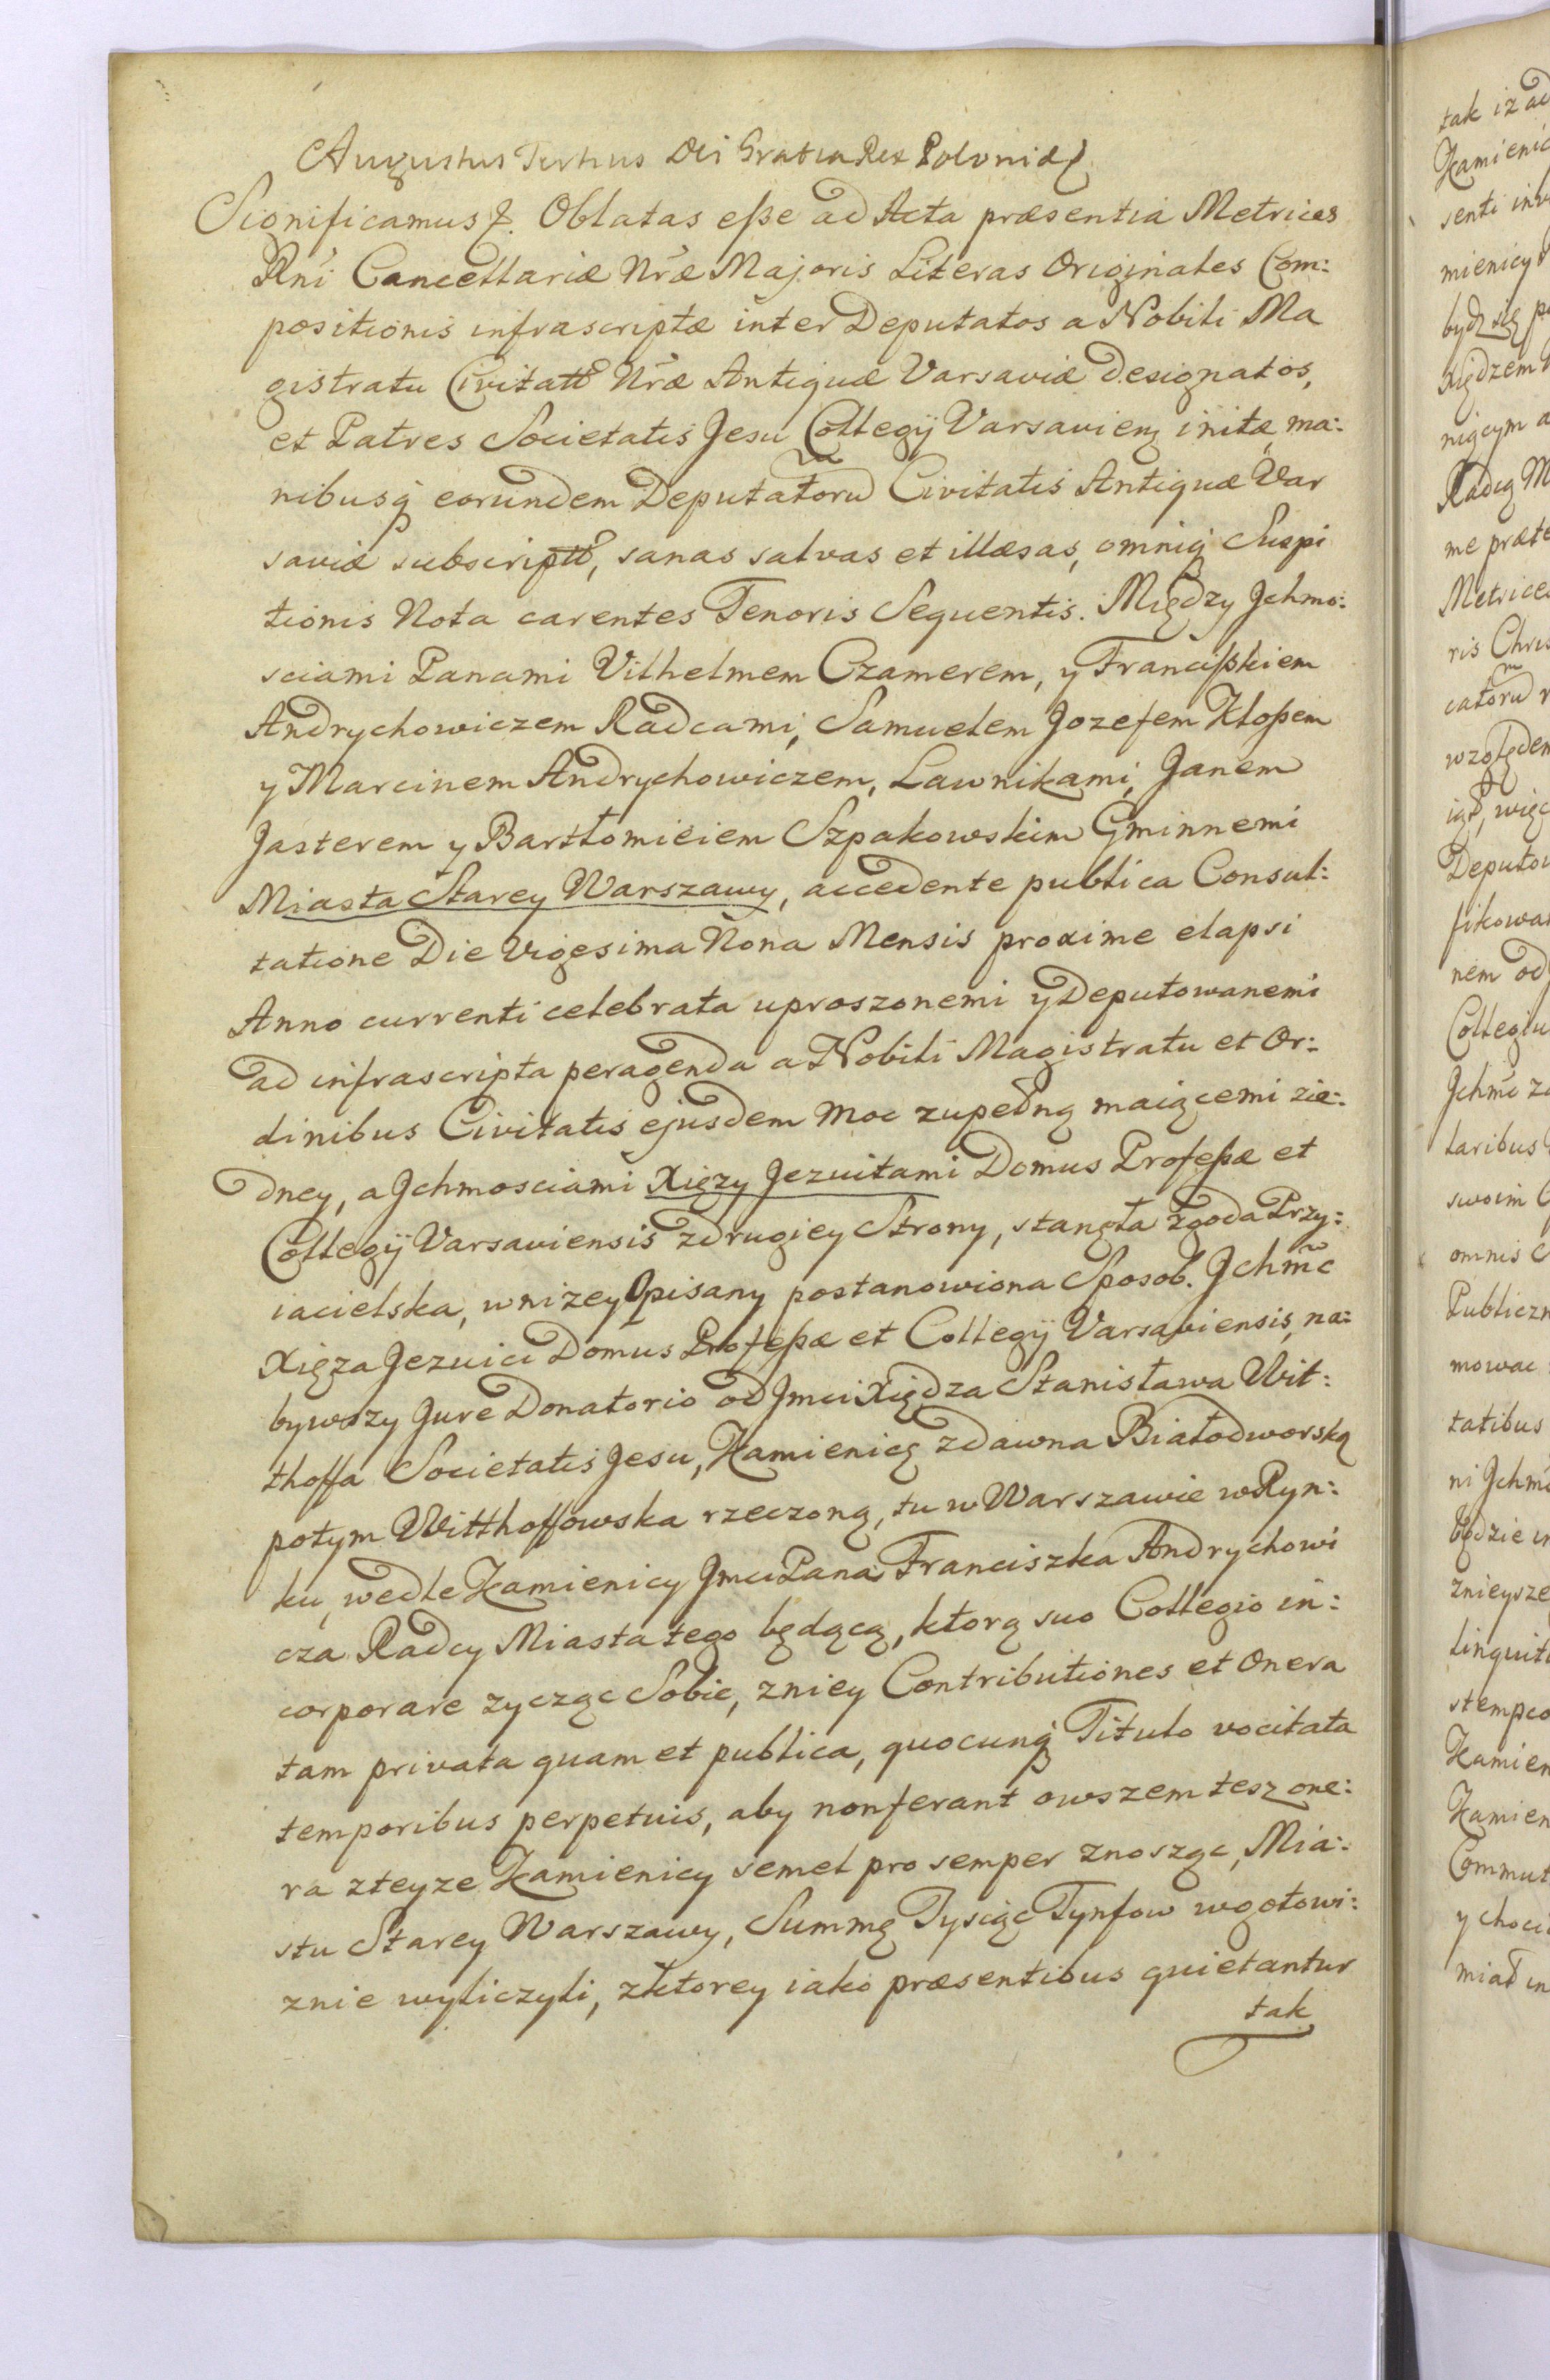 Augustus Tertius Dei Gratia Rex Poloniæ
Significamus &. Oblatas eße ad Acta præsentia Metrices
Rni Cancellariæ Nræ Majoris Literas Originales Com:
positionis infrascriptæ inter Deputatos a Nobili Ma
gistratu Civitatis Nræ Antiquæ Varsaviæ designatos,
et Patres Societatis Jesu Collegij Varsavien initæ, ma:
nibusq eorundem Deputatoru Civitatis Antiquæ Var
saviæ subscriptis, sanas salvas et illæsas, omniq Suspi
tionis Nota carentes Tenoris Sequentis. Między Jchmo:
sciami Panami Vilhelmem Czamerem, y Francißkiem
Andrychowiczem Radcami, Samuelem Jozefem Kloßem
y Marcinem Andrychowiczem, Lawnikami, Janem
Jasterem y Bartłomieiem Szpakowskim Gminnemi
Miasta Starey Warszawy, accedente publica Consul:
tatione Die Vigesima Nona Mensis proxime elapsi
Anno currenti celebrata uproszonemi y Deputowanemi
ad infrascripta peragenda a Nobili Magistratu et Or:
dinibus Civitatis ejusdem moc zupełną maiącemi zie:
dney, a Jchmosciami Xięzy Jezuitami Domus Profeßæ et
Collegij Varsaviensis zdrugiey Strony, stanęła zgoda Przy:
iacielska, wnizey Opisany postanowiona Sposob. Jchmc
Xięza Jezuici Domus Profeßæ et Collegij Varsaviensis, na:
bywszy Jure Donatorio od Jmci Xiędza Stanisława Wit:
thoffa Societatis Jesu, Kamienicę zdawna Białodworską
potym Witthoffowska rzeczoną, tu w Warszawie w Ryn:
ku, wedle Kamienicy Jmci Pana Franciszka Andrychowi
cza Radcy Miasta tego będącą, ktorą suo Collegio in:
corporare zycząc Sobie, zniey Contributiones et Onera
tam privata quam et publica, quocunq Titulo vocitata
temporibus perpetuis, aby non ferant owszem tesz one:
ra zteyze Kamienicy semel pro semper znosząc, Mia:
stu Starey Warszawy, Summę Tysiąc Tynfow wgotowi:
znie wyliczyli, zktorey iako præsentibus quietantur
tak
tak iz
Kamienic
senti
mienicy
bydz się
Xiędzem
nięcym a
Radcą M
me præte
Metrice
ris Chris
catoru
względem
więc
Deputow
fikowa
nem od
Collegiu
Jchmc za
laribus
swoim C
omnis
Publiczn
mowac
tatibus
ni Jchmc
będzie
znieysze
linquit
stempco
Kamien
Kamien
Commut
y choci
miał in